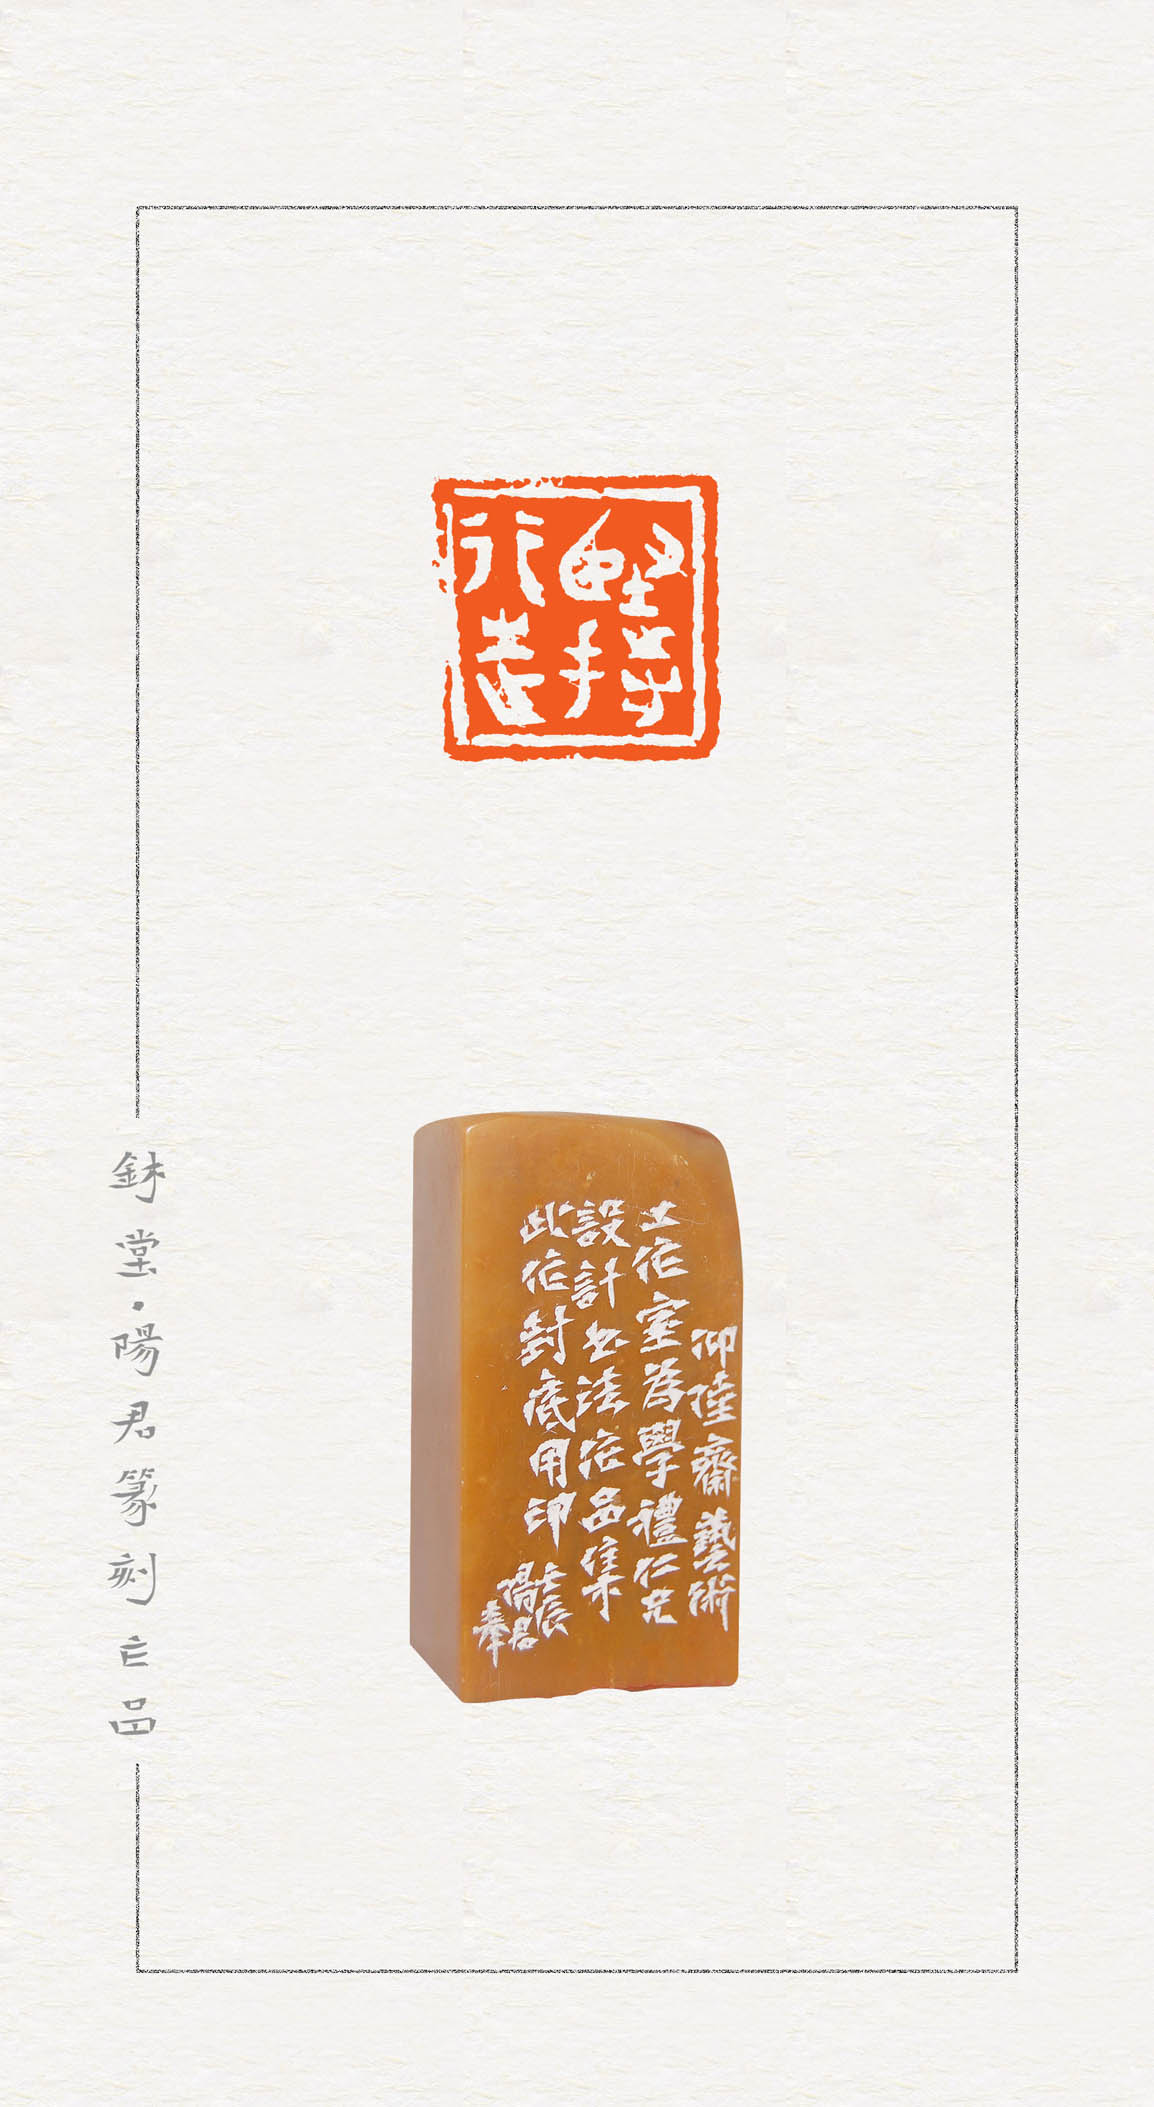 堅持
行走
仰陸齋藝術
工作室為學禮仁兄
設計書法作品集
此作封底用印
壬辰
陽君
奉
鉥堂·陽君篆刻乍品